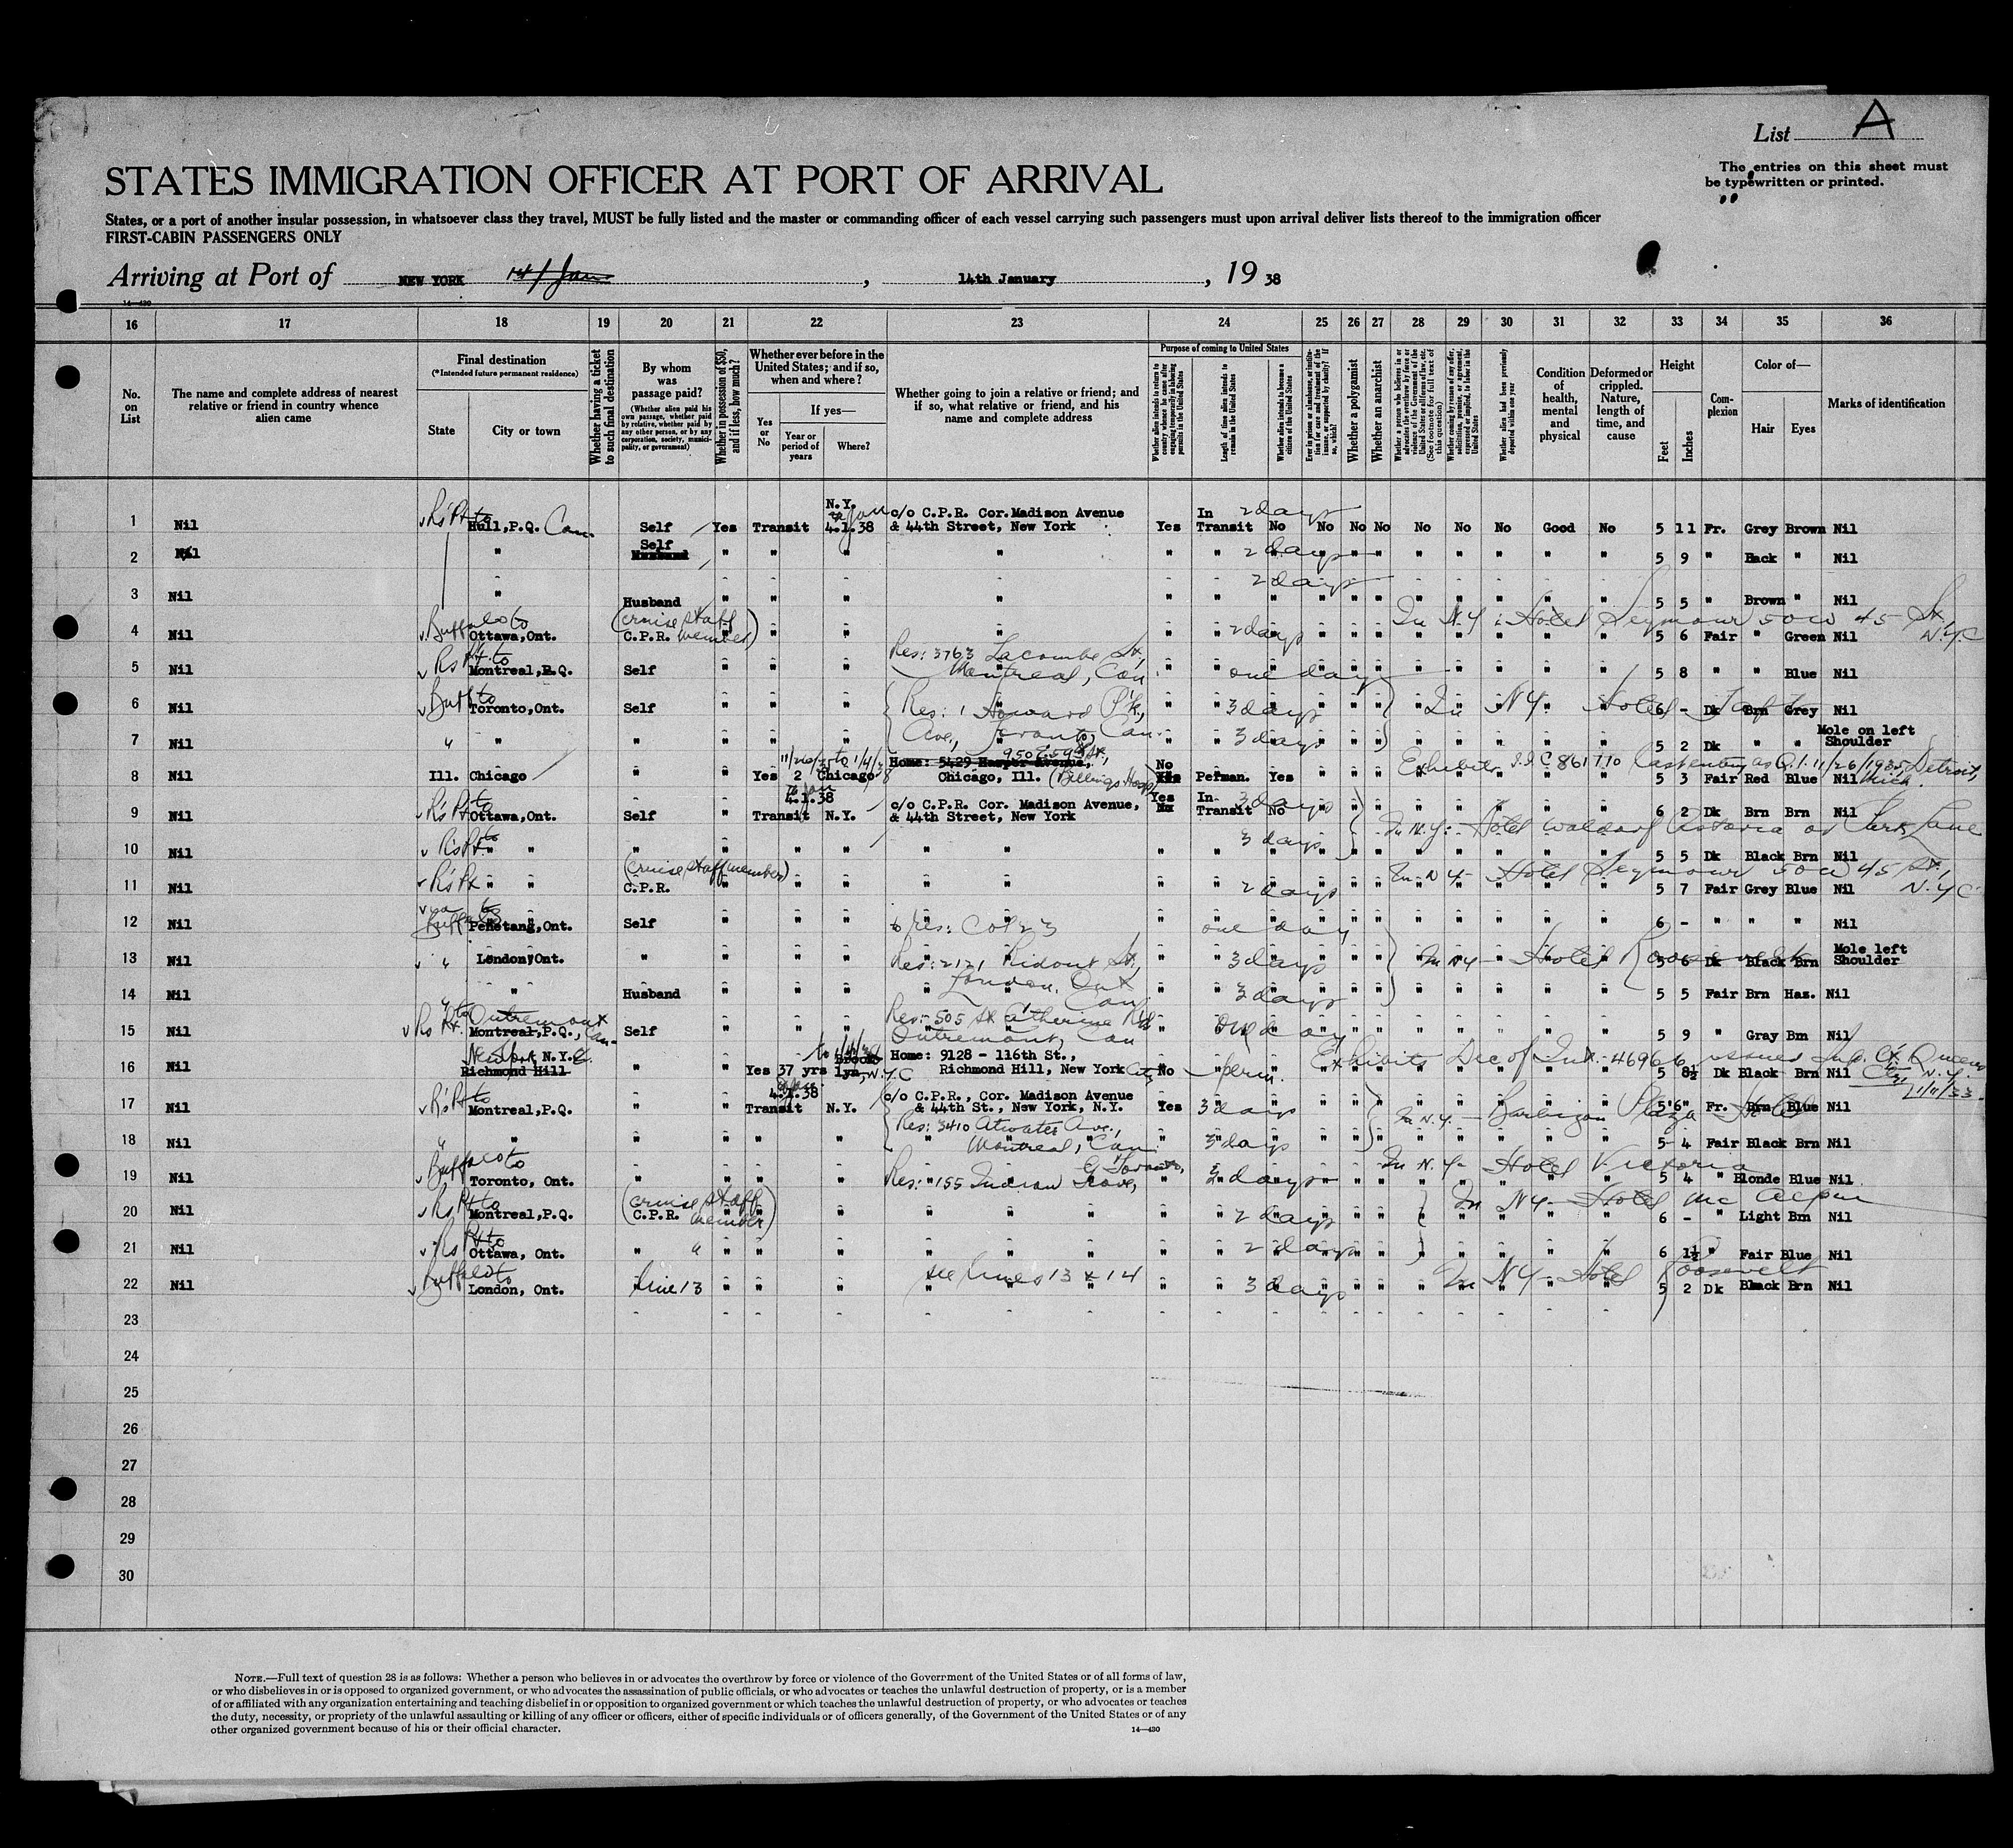 List A
The entries on this sheet must
be typewritten or printed.
STATES IMMIGRATION OFFICER AT PORT OF ARRIVAL
States, or a port of another insular possession, in whatsoever class they travel, MUST be fully listed and the master or commanding officer of each vessel carrying such passengers must upon arrival deliver lists thereof to the immigration officer
FIRST-CABIN PASSENGERS ONLY
Arriving at Port of NEW YORK 14/Jan , 14th January , 19 38
14—430
16 17 18 19 20 21 22 23 24 25 26 27 28 29 30 31 32 33 34 35 36
No. on List
The name and complete address of nearest relative or friend in country whence alien came
Final destination
(*Intended future permanent residence)
State
City or town
Whether having a ticket to such final destination
By whom was passage paid?
(Whether alien paid his own passage, whether paid by relative, whether paid by any other person, or by any corporation, society, municipality, or government)
Whether in possession of $50, and if less, how much?
Whether ever before in the United States; and if so, when and where?
Yes or No
If yes—
Year or period of years
Where?
Whether going to join a relative or friend; and if so, what relative or friend, and his name and complete address
Purpose of coming to United States
Length of time alien intends to remain in the United States
Whether alien intends to become a citizen of the United States
Whether a polygamist
Whether an anarchist
Condition of health, mental and physical
Deformed or crippled. Nature, length of time, and cause
Height
Feet
Inches
Complexion
Color of—
Hair
Eyes
Marks of identification
1 Nil Hull,P.Q. Can. Self Yes Transit N.Y. 4.1.38 c/o C.P.R. Cor.Madison Avenue & 44th Street, New York Yes In Transit 2 days No No No No No No No Good No 5 11 Fr. Grey Brown Nil
2 Nil " Self Husband " " " " " " 2 days " " " " " " " " " 5 9 " Back " Nil
3 Nil " Husband " " " " " " 2 days " " " " " " " " " 5 5 " Brown " Nil
4 Nil Buffalo to Ottawa,Ont. C.P.R. (cruise staff member) " " " " " 2 days In N.Y: Hotel Seymour 50 W 45 St, N.Y.C 5 6 Fair " Green Nil
5 Nil Montreal,P.Q. Self " " " Res: 3763 Lacombe St, Montreal, Can " one day 5 8 " " Blue Nil
6 Nil Buff to Toronto,Ont. Self " " " Res: 1 Howard P'k, " 3 days In NY. Hotel Taft 6 - Dk Brn Grey Nil
7 Nil " " " " " " Ave, Toronto, Can. " 3 days 5 2 Dk " " Mole on left Shoulder
8 Nil Ill. Chicago " " Yes 2 Chicago Home: 5429 Harper Avenue, Chicago, Ill. (Billings Hosp) No Yes Perman. Yes Exhibits I.I.C 861770 11/26/1935, Detroit, Mich. 5 3 Fair Red Blue Nil
9 Nil Ottawa,Ont. Self " Transit 4.1.38 N.Y. c/o C.P.R. Cor. Madison Avenue, & 44th Street, New York Yes No In Transit 3 days No 6 2 Dk Brn Brn Nil
10 Nil " " " " " " " " 3 days In N.Y: Hotel Waldorf Astoria or Park Lane 5 5 Dk Black Brn Nil
11 Nil " " C.P.R. (cruise staff member) " " " " " 2 days In NY - Hotel Seymour 50 W 45 St, N.Y.C 5 7 Fair Grey Blue Nil
12 Nil via Buffalo to Penetang,Ont. Self " " " to res: Col 23 one day 6 - " " " Nil
13 Nil " London,Ont. " " " " Res: 2121 Ridout St, " 3 days In NY - Hotel Roosevelt 5 6 Dk Black Brn Mole left Shoulder
14 Nil " Husband " " " London, Ont Can " 3 days 5 5 Fair Brn Haz. Nil
15 Nil Outremont Montreal,P.Q., Can. Self " " " Res: 505 St Catherine Rd Outremont, Can " one day 5 9 " Gray Brn Nil
16 Nil New York N.Y.C. Richmond Hill " " Yes 37 yrs Brooklyn, N.Y.C Home: 9128 - 116th St., Richmond Hill, New York City No perm. Exhibits Dec of Int. 469666 issued Sup. Ct. Queens Cty N.Y. 5 8½ Dk Black Brn Nil
17 Nil Montreal,P.Q. " " Transit 4.1.38 N.Y. c/o C.P.R., Cor. Madison Avenue & 44th St., New York, N.Y. Yes 3 days In N.Y. - Barbizon Plaza Hotel 5'6" Fr. Brn Blue Nil
18 Nil " " " " " " Res: 3410 Atwater Ave., Montreal, Can. " 3 days 5 4 Fair Black Brn Nil
19 Nil Buffalo to Toronto, Ont. " " " " Res: 155 Indian Grove, Toronto, " 3 days In N.Y- Hotel Victoria 5 4 " Blonde Blue Nil
20 Nil Montreal,P.Q. C.P.R. (cruise staff member) " " " " " 2 days In NY - Hotel Mc Alpin 6 - " Light Brn Nil
21 Nil Ottawa, Ont. " " " " " " " 2 days 6 1½ " Fair Blue Nil
22 Nil Buffalo to London, Ont. Line 13 " " " see lines 13 & 14 " 3 days In NY - Hotel Roosevelt 5 2 Dk Black Brn Nil
23
24
25
26
27
28
29
30
NOTE.—Full text of question 28 is as follows: Whether a person who believes in or advocates the overthrow by force or violence of the Government of the United States or of all forms of law,
or who disbelieves in or is opposed to organized government, or who advocates the assassination of public officials, or who advocates or teaches the unlawful destruction of property, or is a member
of or affiliated with any organization entertaining and teaching disbelief in or opposition to organized government or which teaches the unlawful destruction of property, or who advocates or teaches
the duty, necessity, or propriety of the unlawful assaulting or killing of any officer or officers, either of specific individuals or of officers generally, of the Government of the United States or of any
other organized government because of his or their official character.
14—430